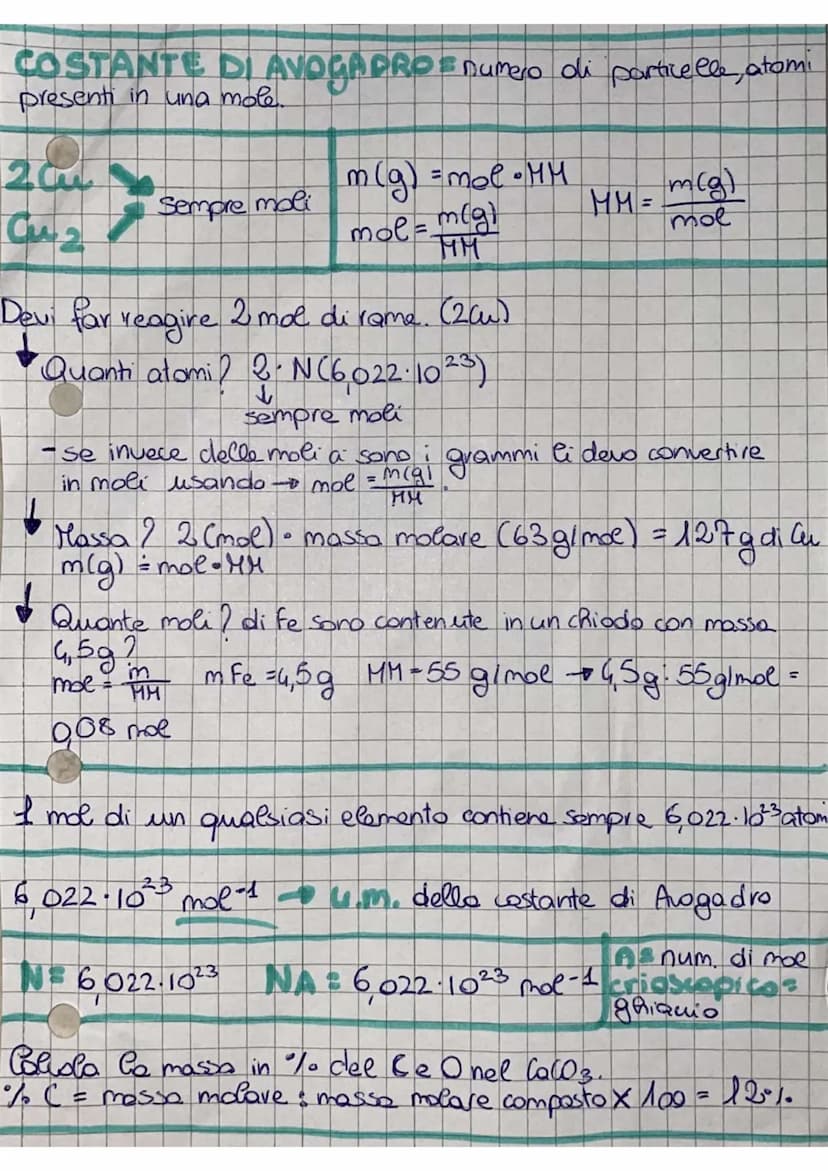 COSTANTE DI AVOGADRO = numero di particelle, atomi
presenti in una mole.
2Cu
Cu2
sempre moli
m(g) = mol • MM
mol = m(g)/MM
MM = m(g)/mol
Devi far reagire 2 mol di rame. (2Cu)
Quanti atomi? 2 · N(6,022·10²³)
↓
sempre moli
- se invece delle moli ci sono i grammi li devo convertire
in moli usando → mol = m(g)/MM.
Massa? 2(mol) • massa molare (63g/mol) = 127g di Cu
m(g) = mol • MM
Quante moli? di Fe sono contenute in un chiodo con massa
4,5g?
mol = m/MM mFe = 4,5g MM = 55 g/mol → 4,5g : 55g/mol =
0,08 mol
1 mol di un qualsiasi elemento contiene sempre 6,022·10²³ atomi
6,022·10²³ mol⁻¹ → u.m. della costante di Avogadro
N = 6,022·10²³ NA = 6,022·10²³ mol⁻¹
A = num. di mol
crioscopico =
ghiaccio
Calcola la massa in % del C e O nel CaCO3.
% C = massa molare : massa molare composto x 100 = 12%